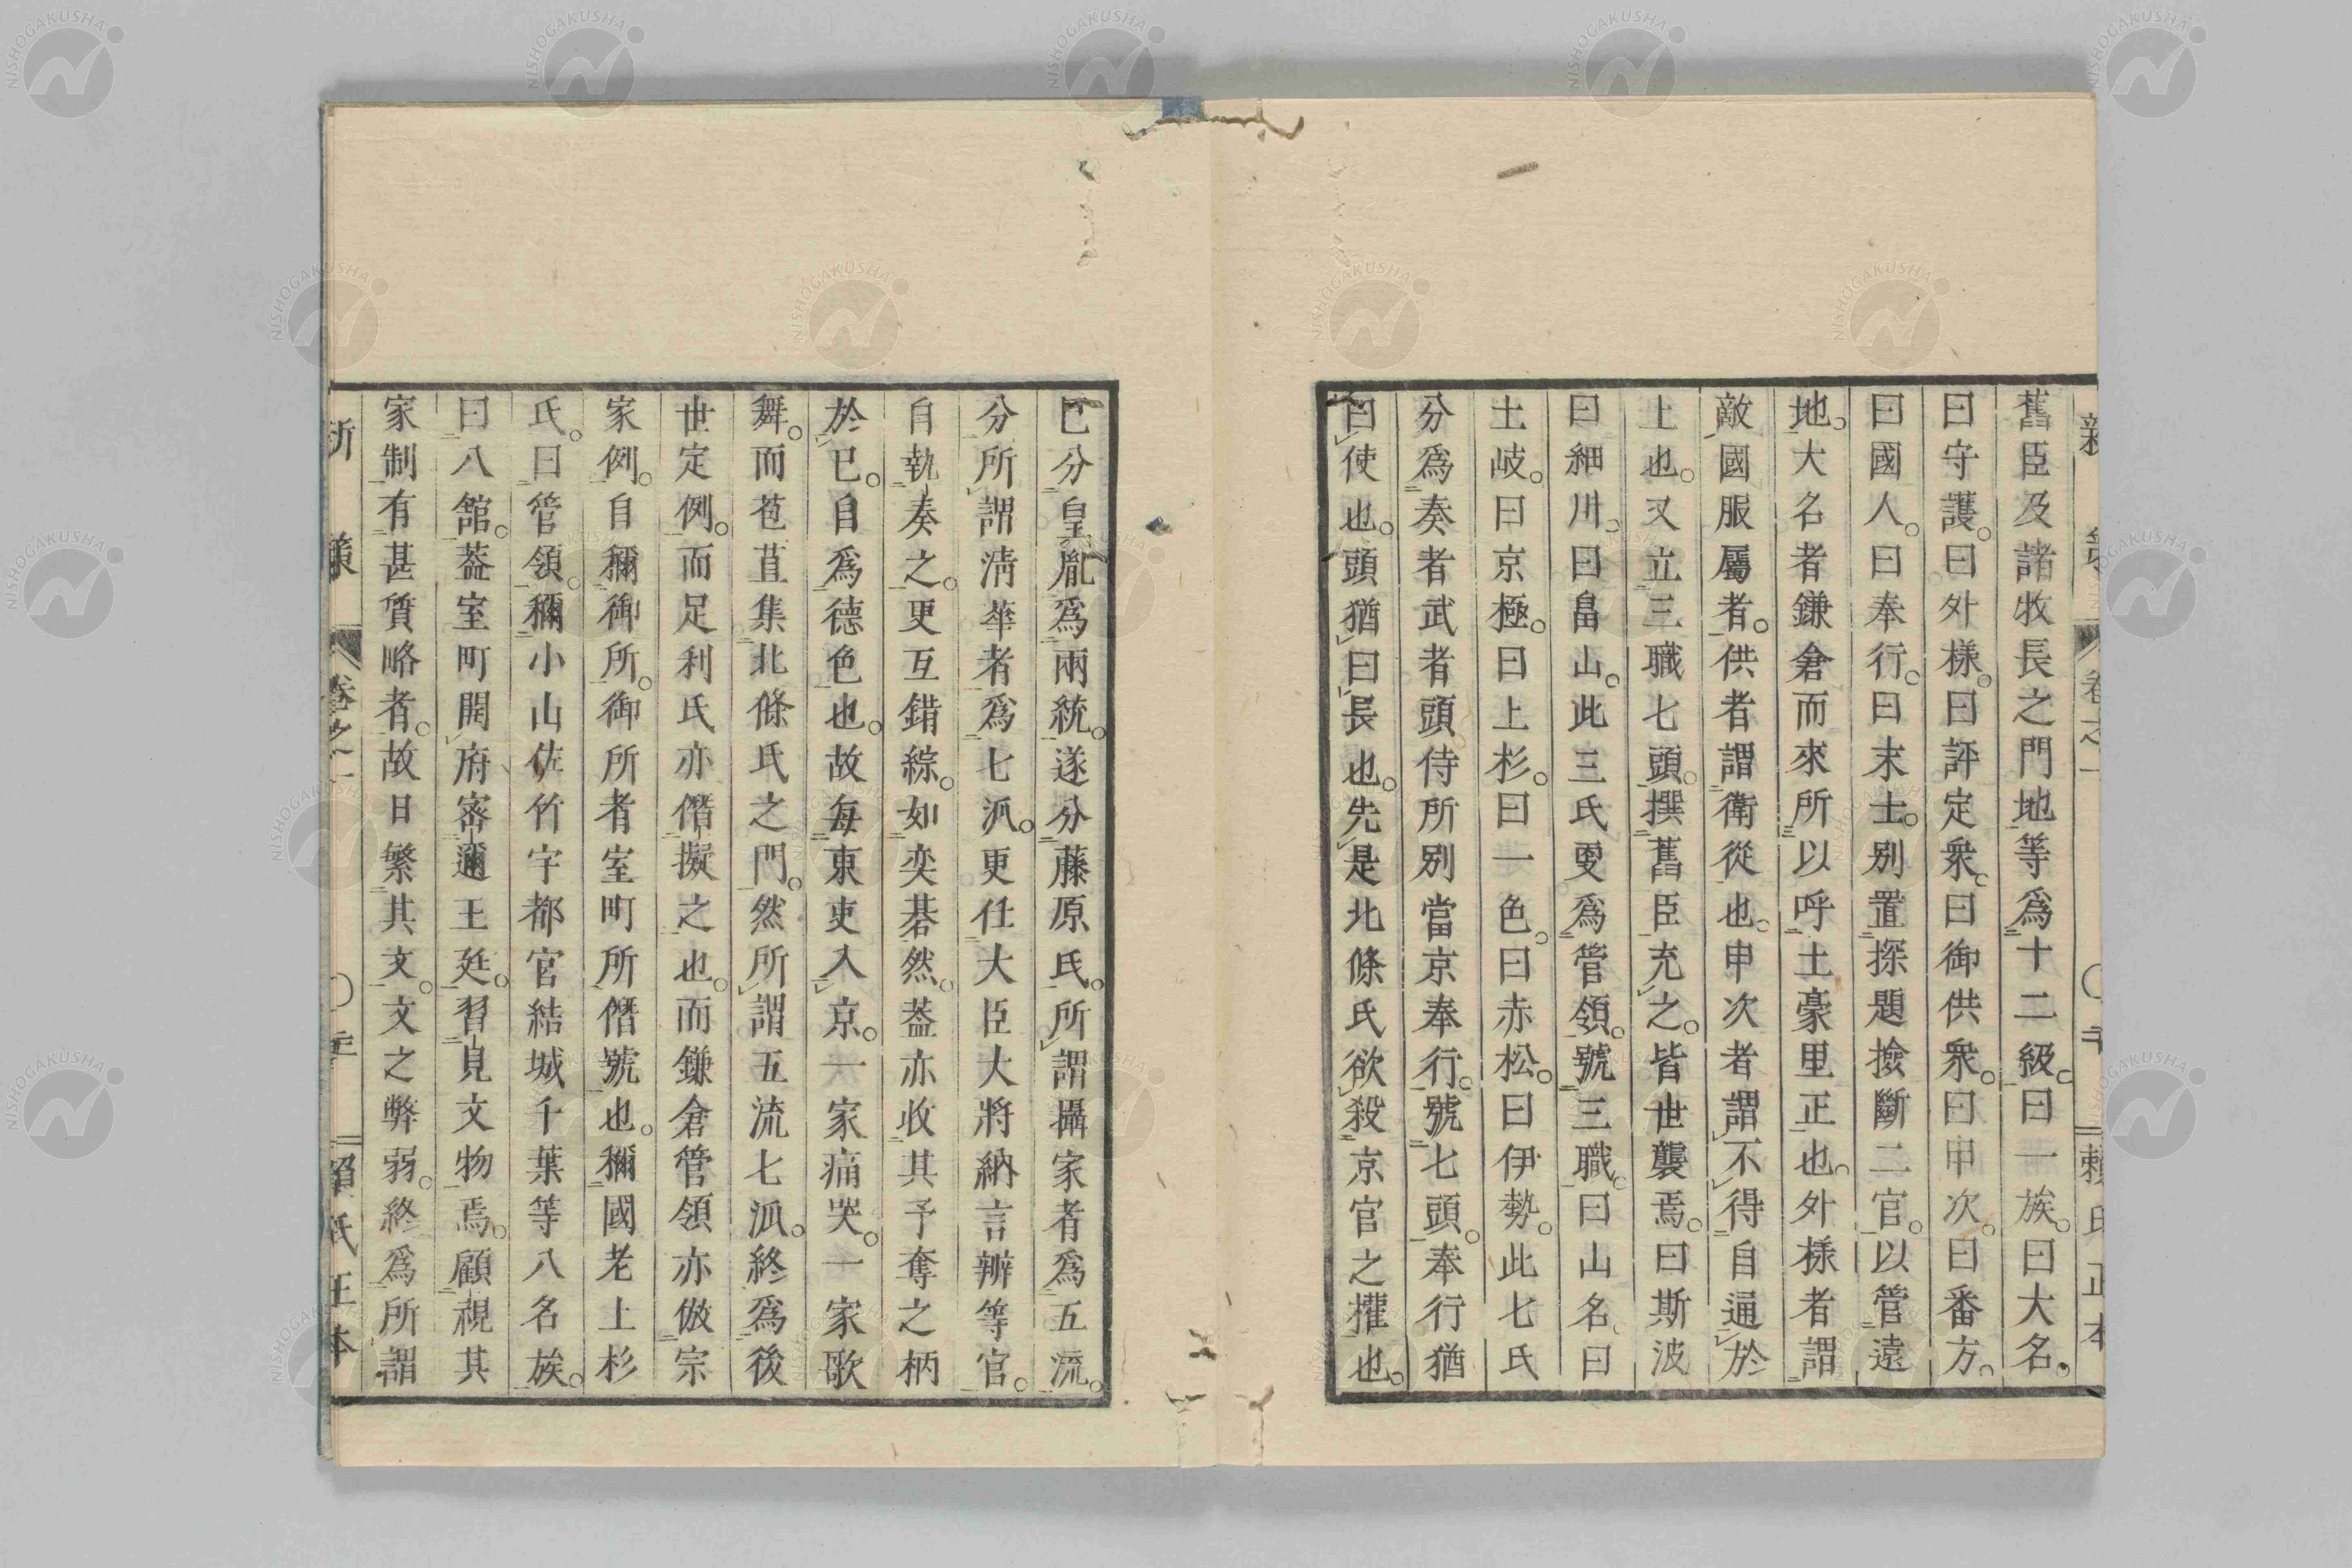 舊臣及諸牧長之門地等爲十二級。曰一族。曰大名。
曰守護。曰外樣。曰評定衆。曰御供衆。曰申次。曰番方。
曰國人。曰奉行。曰末士。別置探題撿斷二官。以管遠
地。大名者鎌倉而來所以呼土豪里正也。外樣者謂
敵國服屬者。供者謂衛從也。申次者謂不得自通於
上也。又立三職七頭。撰舊臣充之。皆世襲焉。曰斯波
曰細川。曰畠山。此三氏更爲管領。號三職。曰山名。曰
土岐。曰京極。曰上杉。曰一色。曰赤松。曰伊勢。此七氏
分爲奏者武者頭侍所別當京奉行。號七頭。奉行猶
曰使也。頭猶曰長也。先是北條氏欲殺京官之權也。
已分皇胤爲兩統。遂分藤原氏。所謂攝家者爲五流。
分所謂淸華者爲七派。更任大臣大將納言辨等官。
自執奏之。更互錯綜。如奕碁然。葢亦收其予奪之柄
於已。自爲德色也。故每東吏入京。一家痛哭。一家歌
舞。而苞苴集北條氏之門。然所謂五流七派。終爲後
世定例。而足利氏亦僭擬之也。而鎌倉管領亦倣宗
家例。自稱御所。御所者室町所僭號也。稱國老上杉
氏。曰管領。稱小山佐竹宇都宮結城千葉等八名族。
曰八舘。葢室町開府密邇王廷。習見文物焉。顧視其
家制有甚質略者。故日繁其文。文之弊弱。終爲所謂
新策
卷之一
賴氏正本